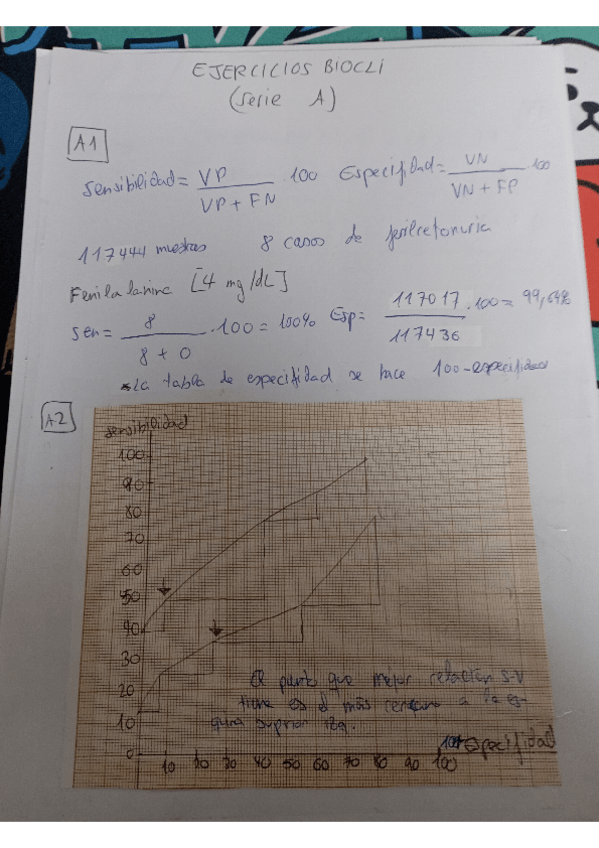 EJERCICIOS BIOCLI
(Serie A)
A1
Sensibilidad = VP / VP + FN . 100 Especifidad = VN / VN + FP . 100
117444 muestras 8 casos de
Fenilalanina [4 mg/dL]
Sen = 8 / 8 + 0 . 100 = 100% Esp = 117017 / 117436 . 100 = 99,64%
*La tabla de especifidad se hace 100-especifidad
A2
sensibilidad
100
90
80
70
60
50
40
30
20
10
0
El punto que mejor relación S-
tiene es el más cercano a la es-
quina superior izq.
10 20 30 40 50 60 70 80 90 100
especifidad